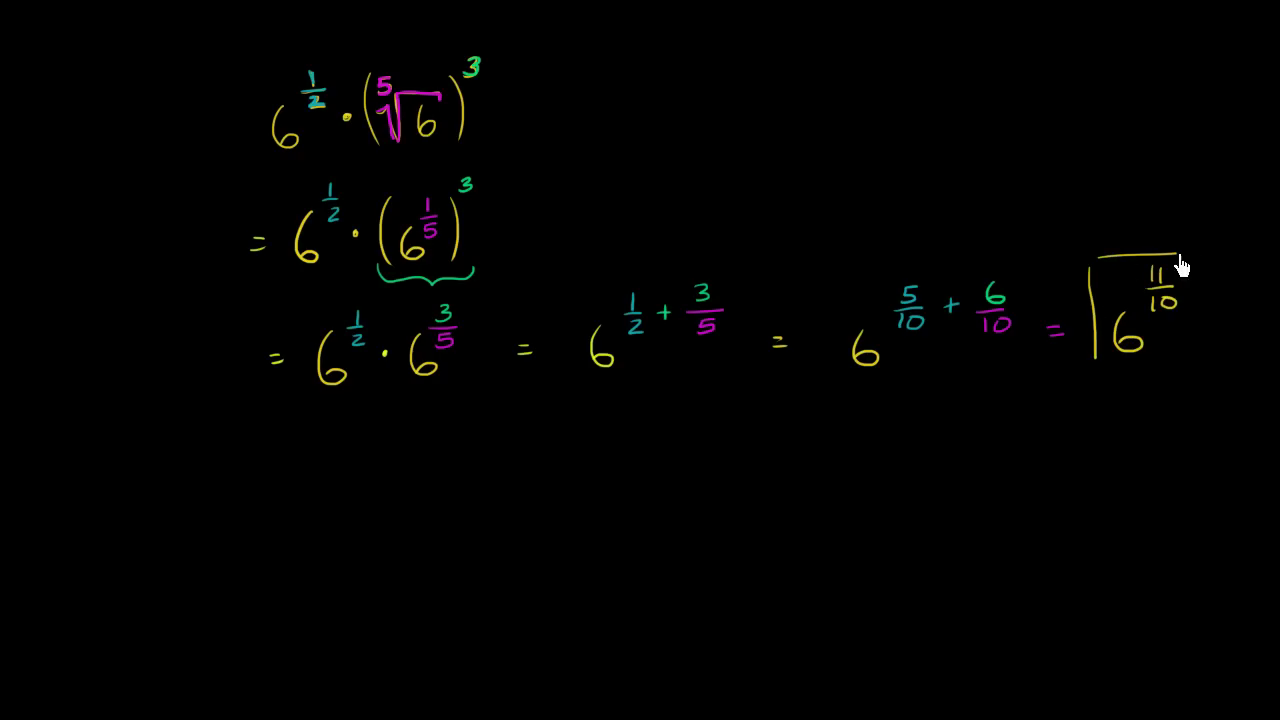 6^{1/2} · (⁵√6)^3
= 6^{1/2} · (6^{1/5})^3
= 6^{1/2} · 6^{3/5} = 6^{1/2 + 3/5} = 6^{5/10 + 6/10} = 6^{11/10}